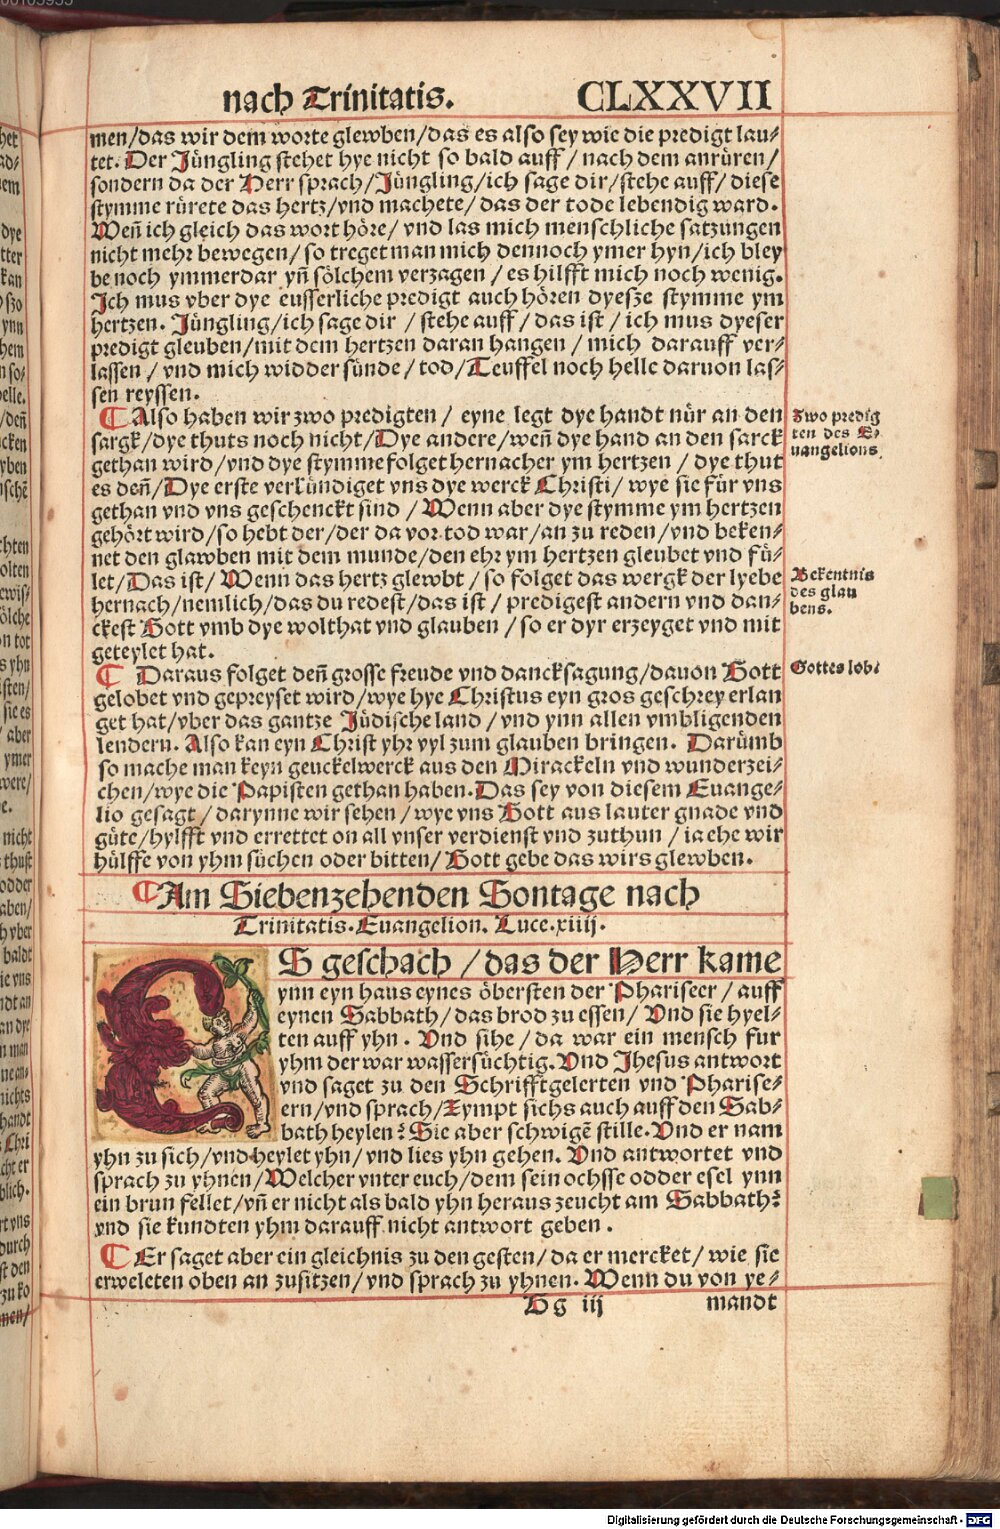 nach Trinitatis. CLXXVII
men/das wir dem worte glewben/das es also sey wie die predigt lau⸗
tet. Der Jüngling stehet hye nicht so bald auff/ nach dem anrüren/
sondern da der Herr sprach/Jüngling/ich sage dir/stehe auff/ diese
stymme rürete das hertz/vnd machete/ das der tode lebendig ward.
Weñ ich gleich das wort höre/ vnd las mich menschliche satzungen
nicht mehr bewegen/ so treget man mich dennoch ymer hyn/ich bley
be noch ymmerdar yñ sölchem verzagen/ es hilfft mich noch wenig.
Ich mus vber dye eusserliche predigt auch hören dyesze stymme ym
hertzen. Jüngling/ich sage dir / stehe auff / das ist / ich mus dyeser
predigt gleuben/mit dem hertzen daran hangen / mich darauff ver⸗
lassen / vnd mich widder sünde / tod/Teuffel noch helle daruon las⸗
sen reyssen.
¶ Also haben wir zwo predigten / eyne legt dye handt nür an den
sargk/dye thuts noch nicht/Dye andere/weñ dye hand an den sarck
gethan wird/vnd dye stymme folget hernacher ym hertzen / dye thut
es deñ/Dye erste verkündiget vns dye werck Christi/ wye sie für vns
gethan vnd vns geschenckt sind / Wenn aber dye stymme ym hertzen
gehört wird/so hebt der/der da vor tod war/an zu reden/vnd beken⸗
net den glawben mit dem munde/den ehr ym hertzen gleubet vnd fü⸗
let/Das ist/ Wenn das hertz glewbt / so folget das wergk der lyebe
hernach/nemlich/das du redest/das ist / predigest andern vnd dan⸗
ckest Gott vmb dye wolthat vnd glauben / so er dyr erzeyget vnd mit
geteylet hat.
Zwo predig
ten des E⸗
uangelions.
Bekentnis
des glau
bens.
¶ Daraus folget deñ grosse freude vnd dancksagung/dauon Gott
gelobet vnd gepreyset wird/wye hye Christus eyn gros geschrey erlan
get hat/vber das gantze Jüdische land / vnd ynn allen vmbligenden
lendern. Also kan eyn Christ yhr vyl zum glauben bringen. Darümb
so mache man keyn geuckelwerck aus den Mirackeln vnd wunderzei⸗
chen/wye die Papisten gethan haben. Das sey von diesem Euange⸗
lio gesagt / darynne wir sehen / wye vns Gott aus lauter gnade vnd
güte/hylfft vnd errettet on all vnser verdienst vnd zuthun / ia ehe wir
hülffe von yhm süchen oder bitten/ Gott gebe das wirs glewben.
Gottes lob.
¶ Am Siebenzehenden Sontage nach
Trinitatis. Euangelion. Luce. xiiij.
ES geschach / das der Herr kame
ynn eyn haus eynes öbersten der Phariseer / auff
eynen Sabbath/das brod zu essen/ Vnd sie hyel⸗
ten auff yhn. Vnd sihe / da war ein mensch fur
yhm der war wassersüchtig. Vnd Jhesus antwort
vnd saget zu den Schrifftgelerten vnd Pharise⸗
ern/vnd sprach/Zympt sichs auch auff den Sab⸗
bath heylen? Sie aber schwigẽ stille. Vnd er nam
yhn zu sich/vnd heylet yhn/vnd lies yhn gehen. Vnd antwortet vnd
sprach zu yhnen/Welcher vnter euch/dem sein ochsse odder esel ynn
ein brun fellet/vñ er nicht als bald yhn heraus zeucht am Sabbath?
vnd sie kundten yhm darauff nicht antwort geben.
¶ Er saget aber ein gleichnis zu den gesten/da er mercket/ wie sie
erweleten oben an zusitzen/vnd sprach zu yhnen. Wenn du von ye⸗
Hg iij mandt
Digitalisierung gefördert durch die Deutsche Forschungsgemeinschaft - DFG